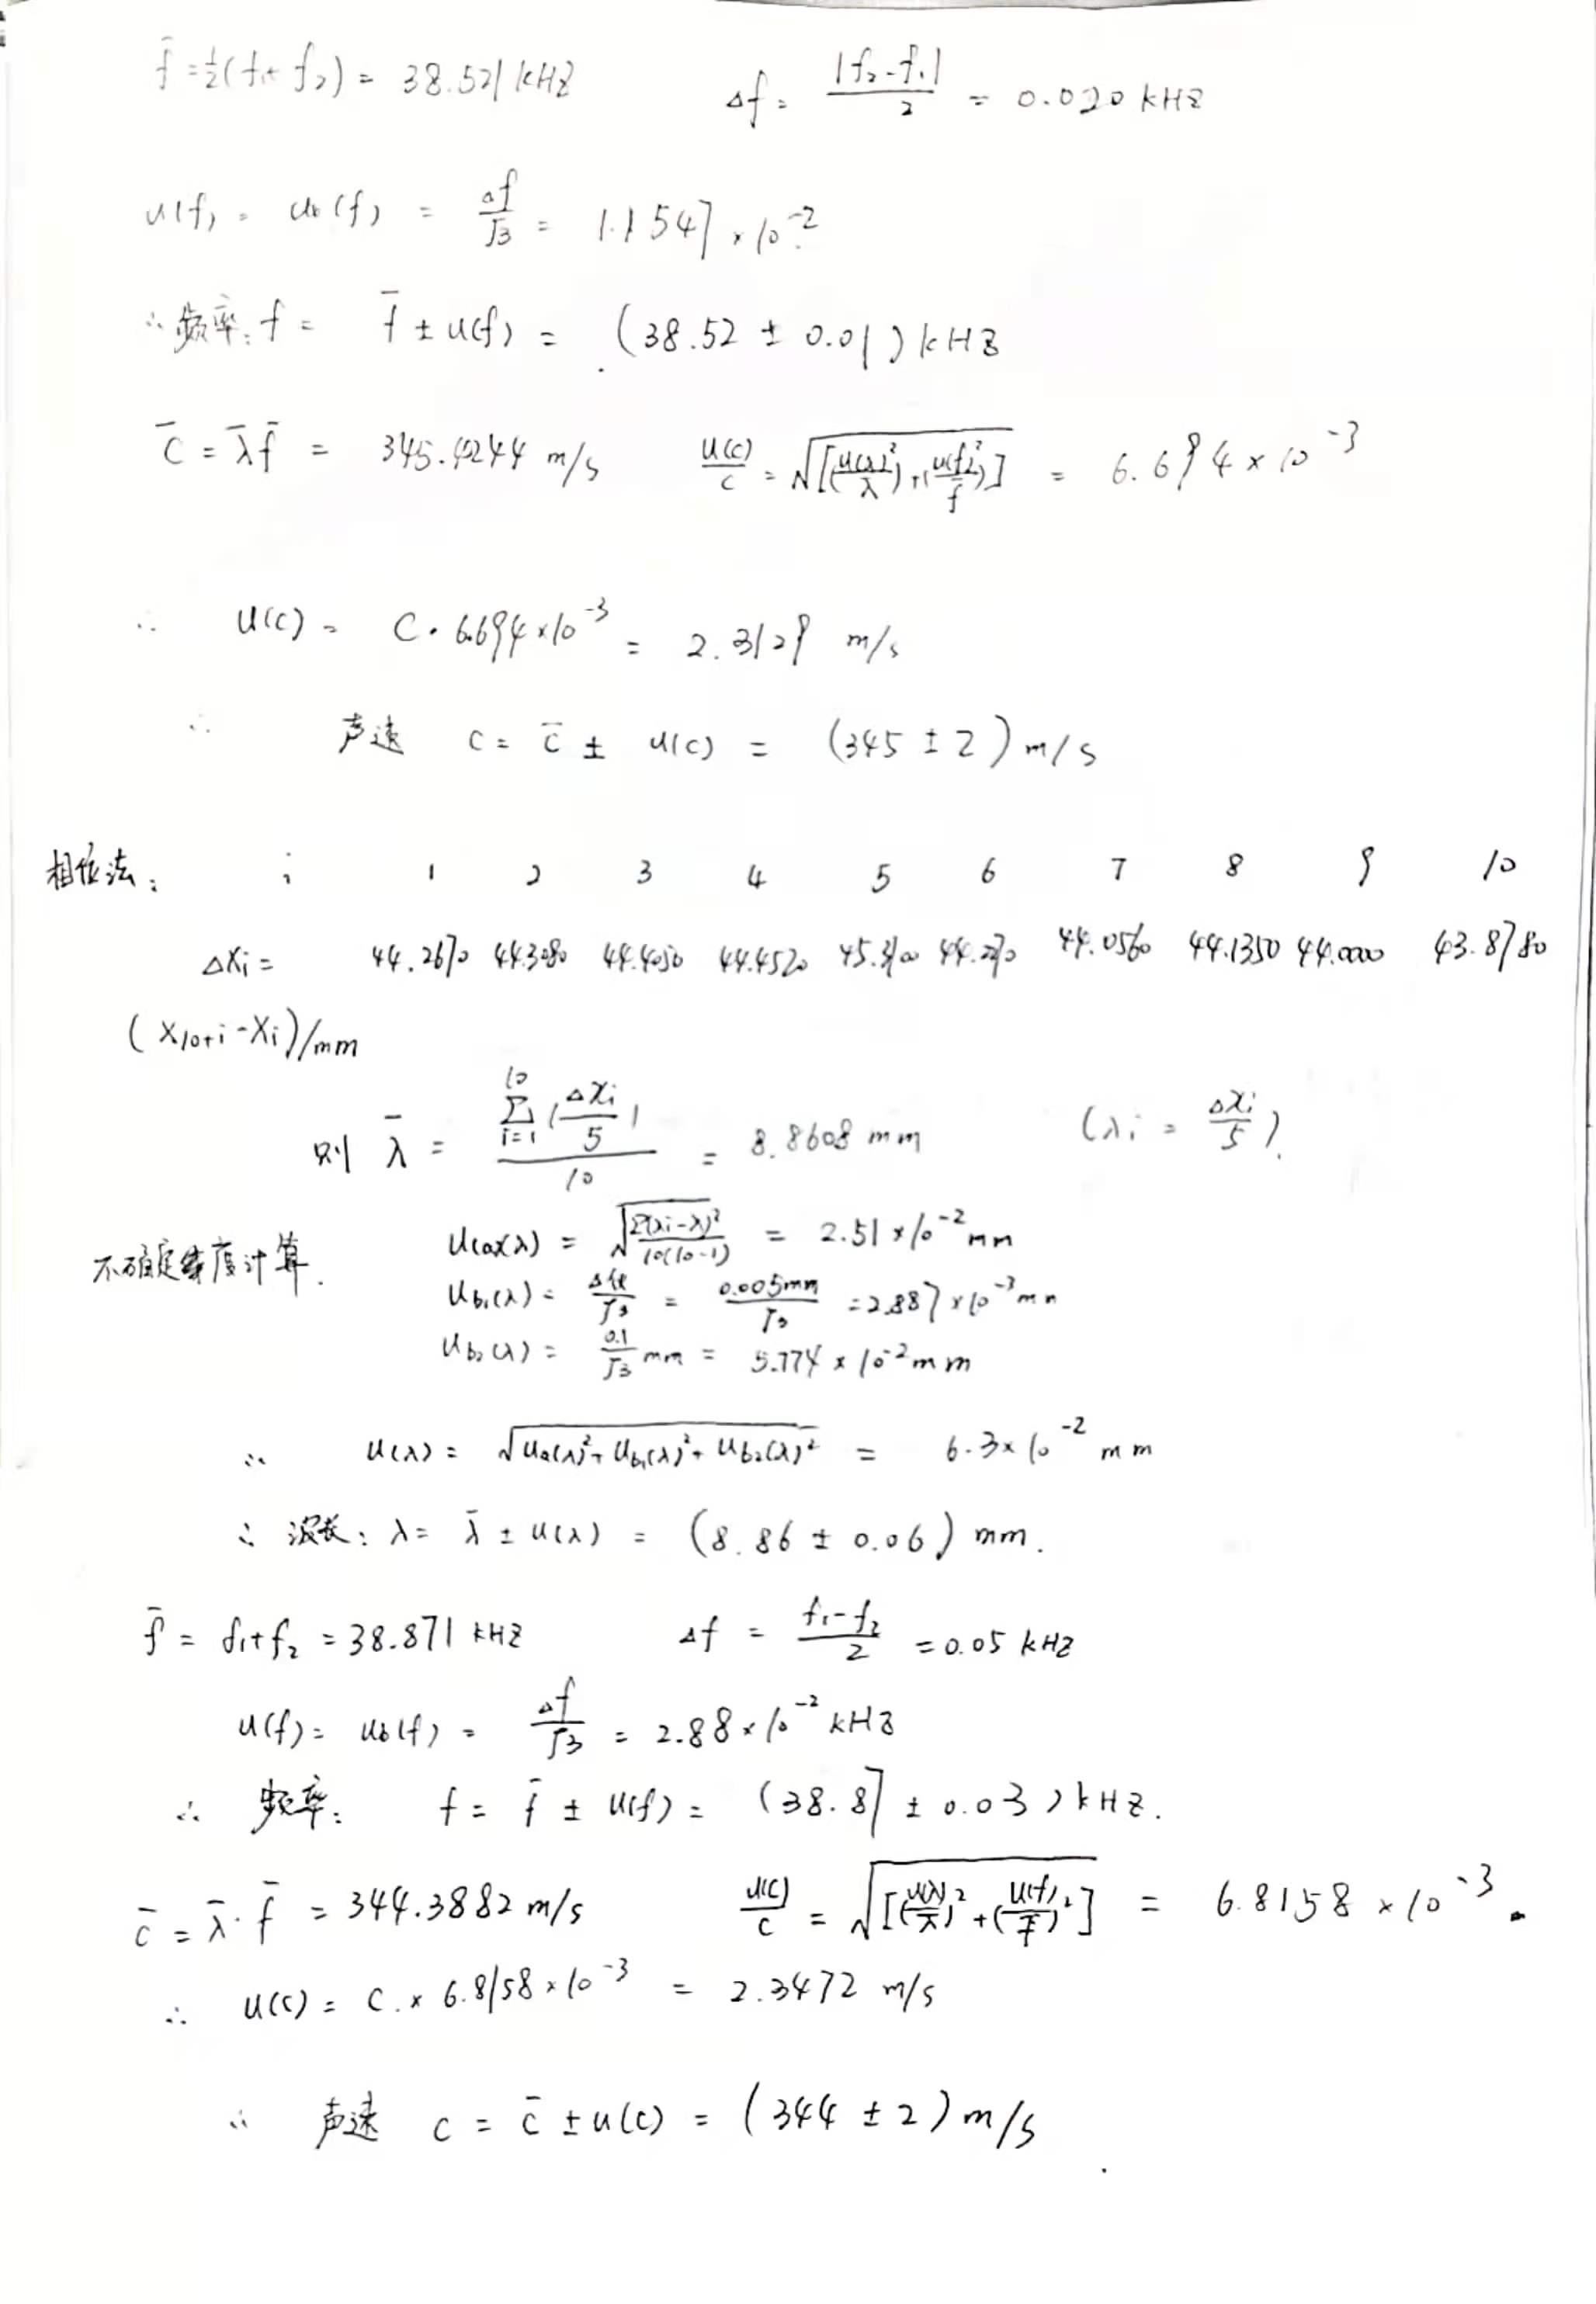 f̄ = ½(f₁+f₂) = 38.521 kHz    Δf = |f₂-f₁|/2 = 0.020 kHz
u(f) = u_b(f) = Δf/√3 = 1.1547×10⁻²
∴ 频率: f = f̄ ± u(f) = (38.52 ± 0.01) kHz
C̄ = λ̄f̄ = 345.4244 m/s    u(c)/c = √[(u(λ)/λ)²+(u(f)/f̄)²] = 6.694×10⁻³
∴ u(c) = C·6.694×10⁻³ = 2.3129 m/s
∴ 声速 c = c̄ ± u(c) = (345 ± 2) m/s
相位法: i 1 2 3 4 5 6 7 8 9 10
Δxi = 44.2670 44.3080 44.4050 44.4520 44.0560 44.1350 44.000 43.8780
(x10+i - xi)/mm
则 λ̄ = Σ_{i=1}^{10}(Δxi/5)/10 = 8.8608 mm    (λi = Δxi/5).
不确定度计算.    u(a)(λ) = √(Σ(λi-λ)²/10(10-1)) = 2.51×10⁻² mm
u_b₁(λ) = Δ仪/√3 = 0.005mm/√3 = 2.887×10⁻³ mm
u_b₂(λ) = 0.1/√3 mm = 5.774×10⁻² mm
∴ u(λ) = √(u_a(λ)²+u_b₁(λ)²+u_b₂(λ)²) = 6.3×10⁻² mm
∴ 波长: λ = λ̄ ± u(λ) = (8.86 ± 0.06) mm.
f̄ = f₁+f₂ = 38.871 kHz    Δf = f₁-f₂/2 = 0.05 kHz
u(f) = u_b(f) = Δf/√3 = 2.88×10⁻² kHz
∴ 频率: f = f̄ ± u(f) = (38.87 ± 0.03) kHz.
c̄ = λ̄·f̄ = 344.3882 m/s    u(c)/c = √[(u(λ)/λ̄)²+(u(f)/f̄)²] = 6.8158×10⁻³.
∴ u(c) = C.× 6.8158×10⁻³ = 2.3472 m/s
∴ 声速 c = c̄ ± u(c) = (344 ± 2) m/s